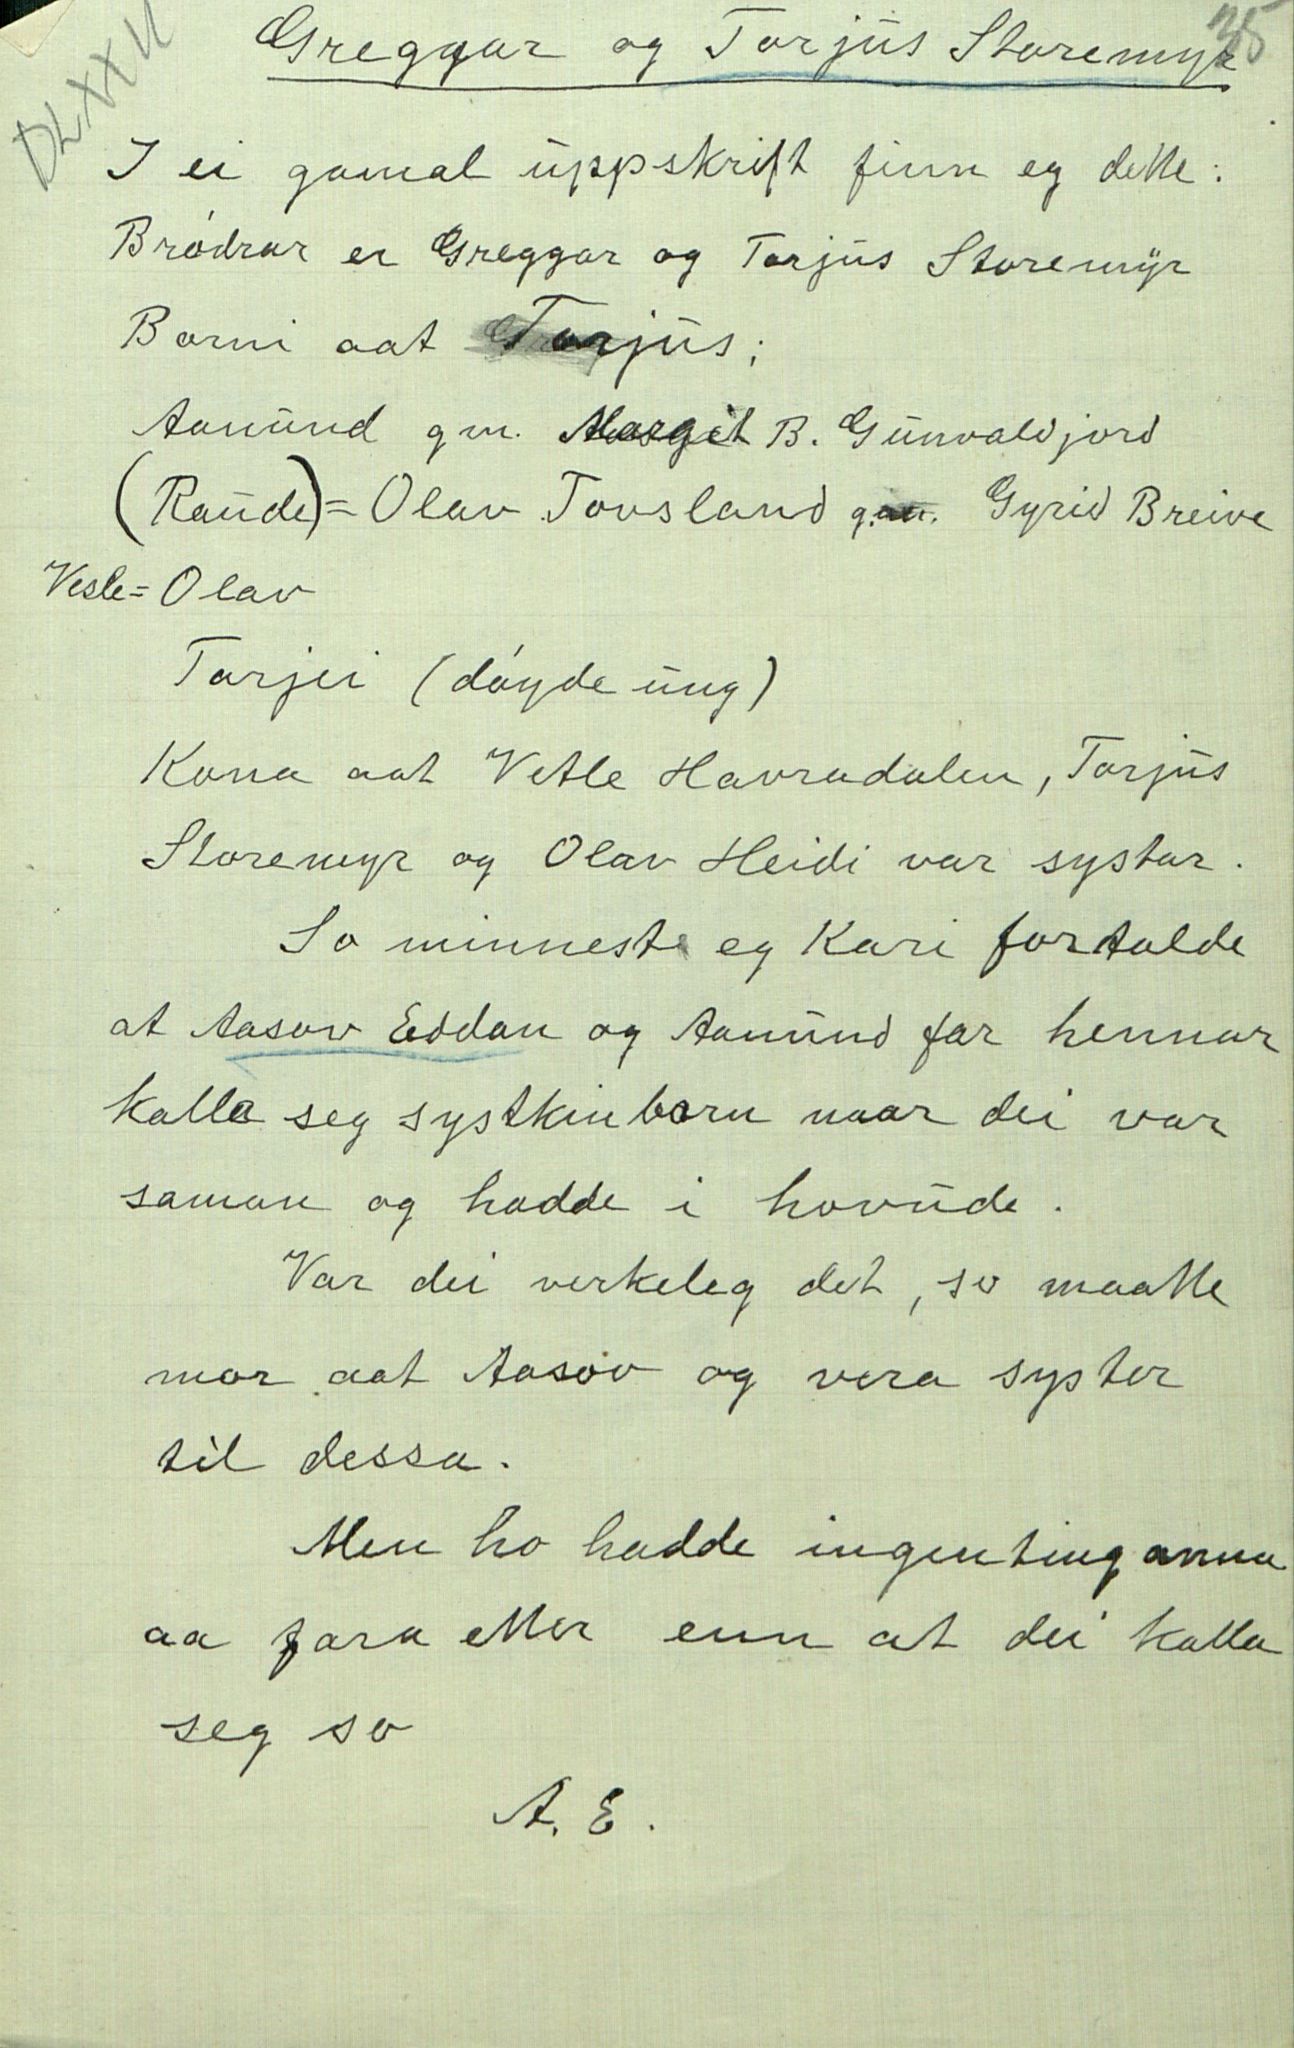 35
DLXXII
Greggar og Torjus Storemyr
I ei gamal uppskrift finn eg dette:
Brødrar er Greggar og Torjus Storemyr
Borni aat Torjus;
Aamund gm. Margit B. Gunvaldjord
(Raude)= Olav Tovsland gm. Gyrid Breive
Vesle= Olav
Tarjei (døyde ung)
Kona aat Vetle Havradalen, Torjus
Storemyr og Olav Heidi var systar.
So minneste eg Kari fortalde
at Aasov Eddan og Aamund far hennar
kalla seg systkinborn naar dei var
saman og hadde i hovude.
Var dei verkeleg det, so maatte
mor aat Aasov og vera syster
til dessa.
Men ho hadde ingenting anna
aa fara etter enn at dei kalla
seg so
A. E.